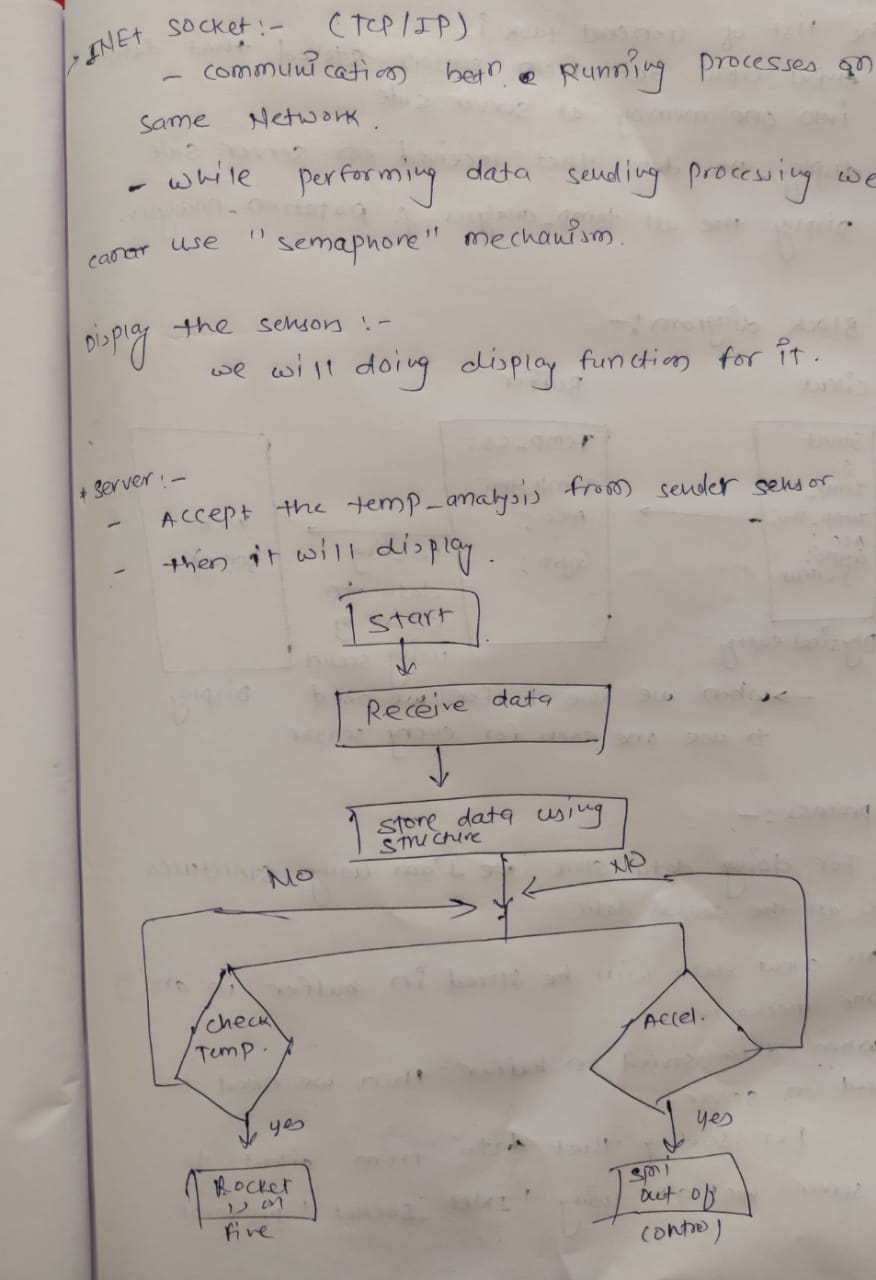 INET socket :- (TCP/IP)
- communication betn. Running processes on
same Network.
- while performing data sending processing we
use "semaphore" mechanism.
Display the sensors :-
we will doing display function for it.
* server :-
- Accept the temp_analysis from sender sensor
- then it will display.
Start
Receive data
store data using
structure
NO
NO
check
Temp.
Accel.
yes
yes
Rocket
is on
Fire
out of
control